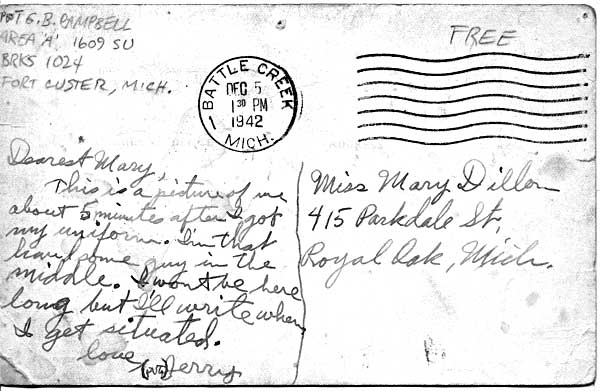 PVT G. B. CAMPBELL
AREA 'A' 1609 SU
BRKS 1024
FORT CUSTER, MICH.
FREE
BATTLE CREEK
DEC 5
1 30 PM
1942
MICH.
1
Dearest Mary,
This is a picture of me
about 5 minutes after I got
my uniform. I'm that
handsome guy in the
middle. I wont be here
long but I'll write when
I get situated.
love
(pvt) Jerry
Miss Mary Dillon
415 Parkdale St,
Royal Oak, Mich.